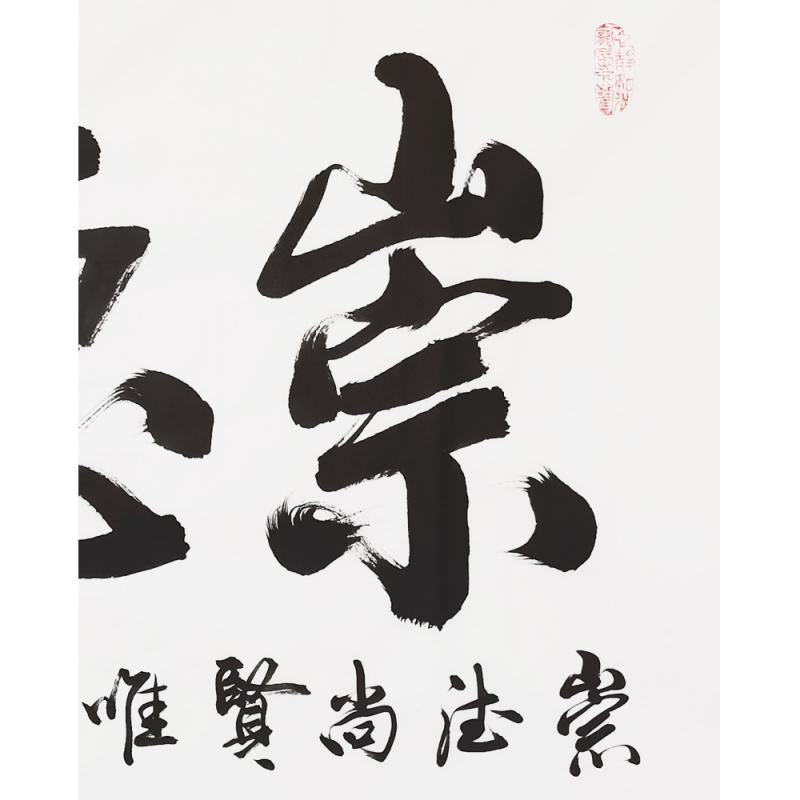 崇
崇德尚賢唯